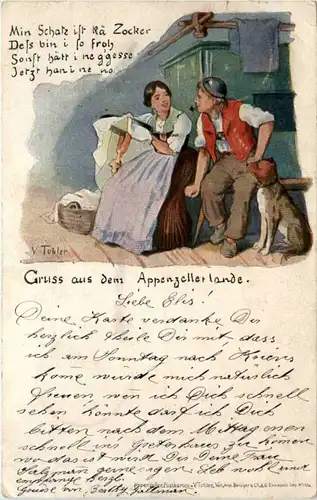 Min Schatz ist kä Zocker
Deſs bin i so froh
Sonst hätt i ne g'gesse
Jetzt han i ne no.
V Tobler
Gruss aus dem Appenzellerlande.
Liebe Elis!
Deine Karte verdanke Dir
herzlich theile Dir mit dass
ich am Sonntag nach
kome würde mich natürlich
freuen, wen ich Dich schnell
sehen könnte darf ich Dich
bitten nach dem Mittagessen
schnell ins zu komen
wen das ist wird des Dir Deine Frau
gerne sagen. Leb wohl und
empfange herzl.
Grüsse von